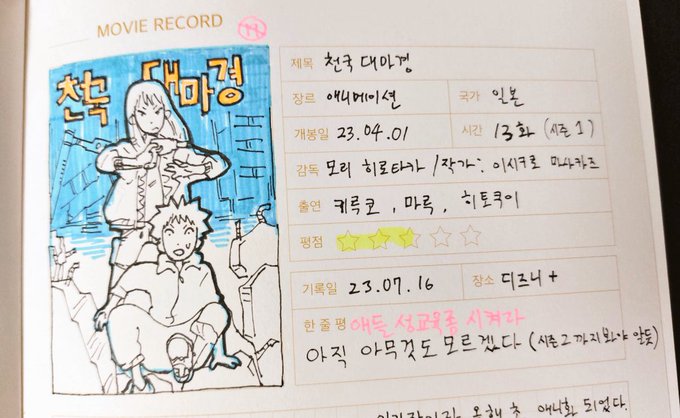 MOVIE RECORD
천국 대마경
제목 천국 대마경
장르 애니메이션 국가 일본
개봉일 23.04.01 시간 13화 (시즌 1)
감독 모리 히로타카 / 작가: 이시구로 마사카즈
출연 키루코, 마루, 히토쿠이
평점
기록일 23.07.16 장소 디즈니+
한 줄 평 애들 성교육좀 시켜라
아직 아무것도 모르겠다 (시즌2까지봐야 알듯)
올해 첫 애니화 되었다